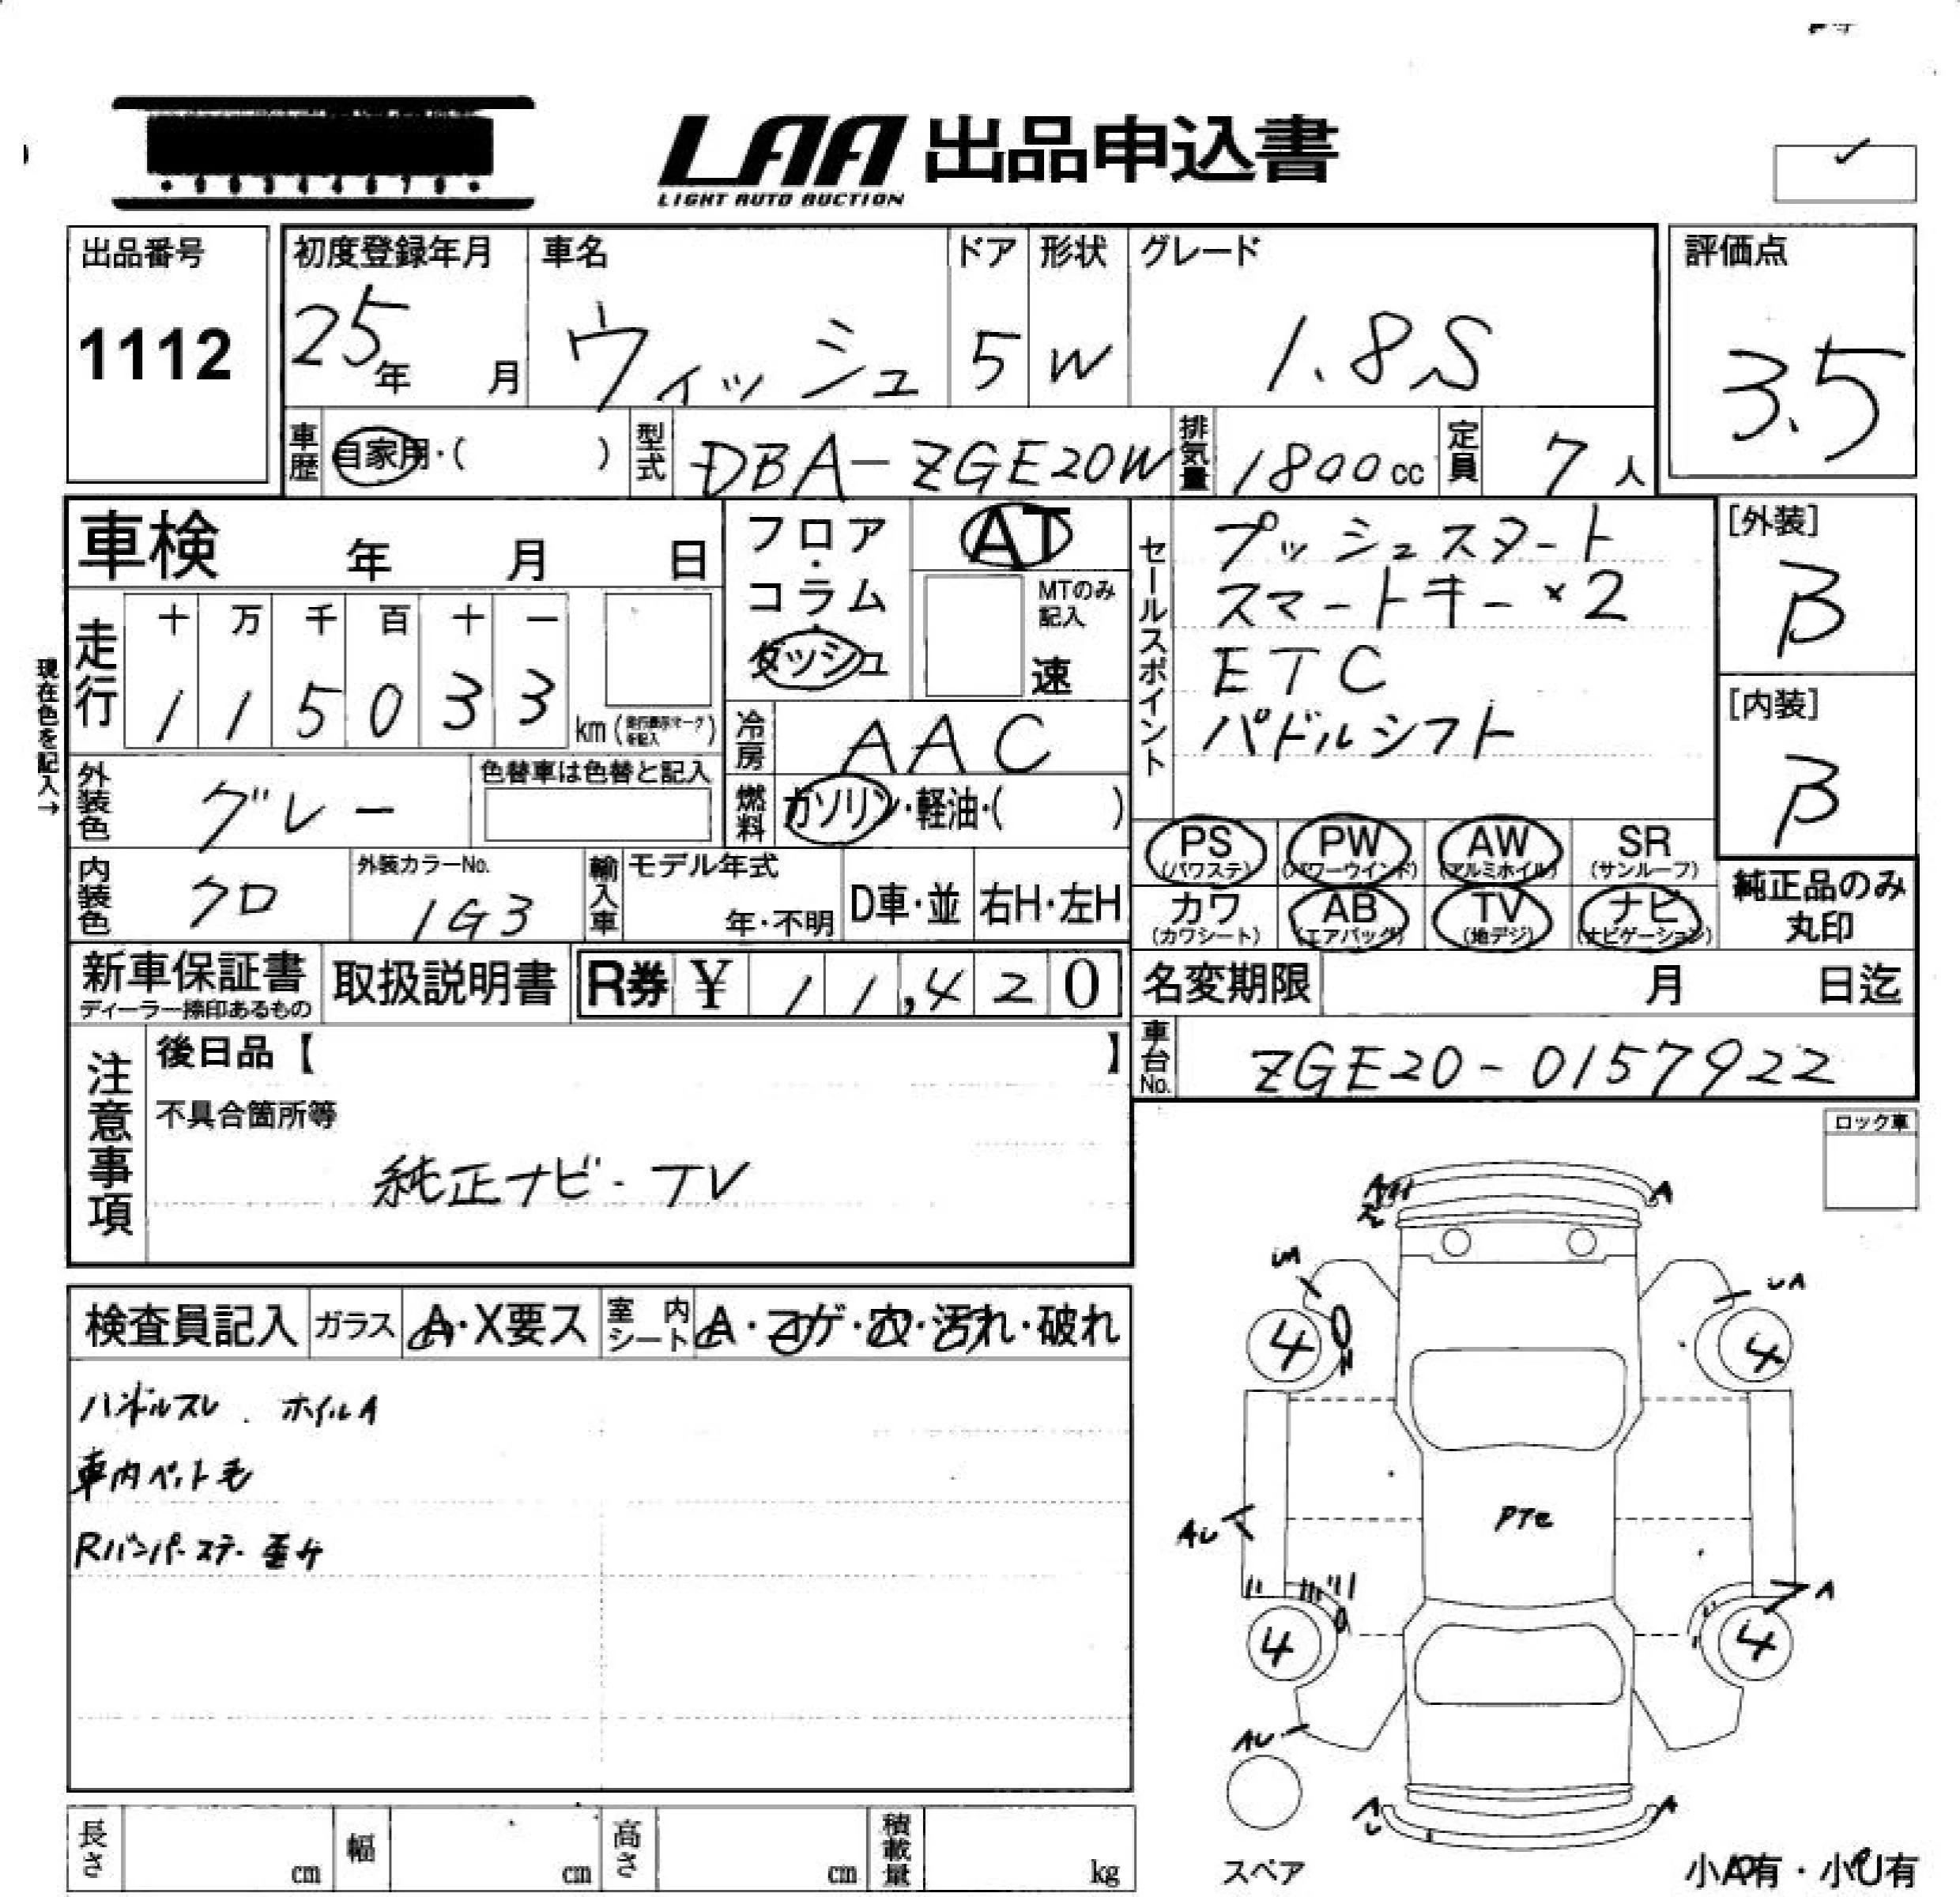 LAA 出品申込書
LIGHT AUTO AUCTION
出品番号
1112
初度登録年月
25年 月
車名
ウィッシュ
ドア
5
形状
W
グレード
1.8S
評価点
3.5
車歴 自家用・( )
型式 DBA-ZGE20W
排気量 1800cc
定員 7人
車検 年 月 日
フロア・コラム・ダッシュ
AT
MTのみ記入
速
セールスポイント
プッシュスタート
スマートキー×2
ETC
パドルシフト
[外装]
B
[内装]
B
現在色を記入→
走行
十 万 千 百 十 一
1 1 5 0 3 3 km (走行表示マークを記入)
冷房 AAC
燃料 ガソリン・軽油・( )
外装色 グレー
色替車は色替と記入
内装色 クロ
外装カラーNo.
1G3
輸入車
モデル年式
年・不明
D車・並
右H・左H
PS (パワステ)
PW (パワーウインド)
AW (アルミホイル)
SR (サンルーフ)
カワ (カワシート)
AB (エアバック)
TV (地デジ)
ナビ (ナビゲーション)
純正品のみ丸印
新車保証書
ディーラー捺印あるもの
取扱説明書
R券 ¥ 11,420
名変期限 月 日迄
車台No. ZGE20-0157922
注意事項
後日品【 】
不具合箇所等
純正ナビ・TV
ロック車
検査員記入
ガラス A・X要ス
室内シート A・コゲ・穴・汚れ・破れ
ハンドルスレ. ホイルA
車内ペット毛
Rバンパーステー歪ケ
A
A
UA
4
4
AU
PTE
A
4
4
AU
A
スペア
長さ cm
幅 cm
高さ cm
積載量 kg
小A有・小U有